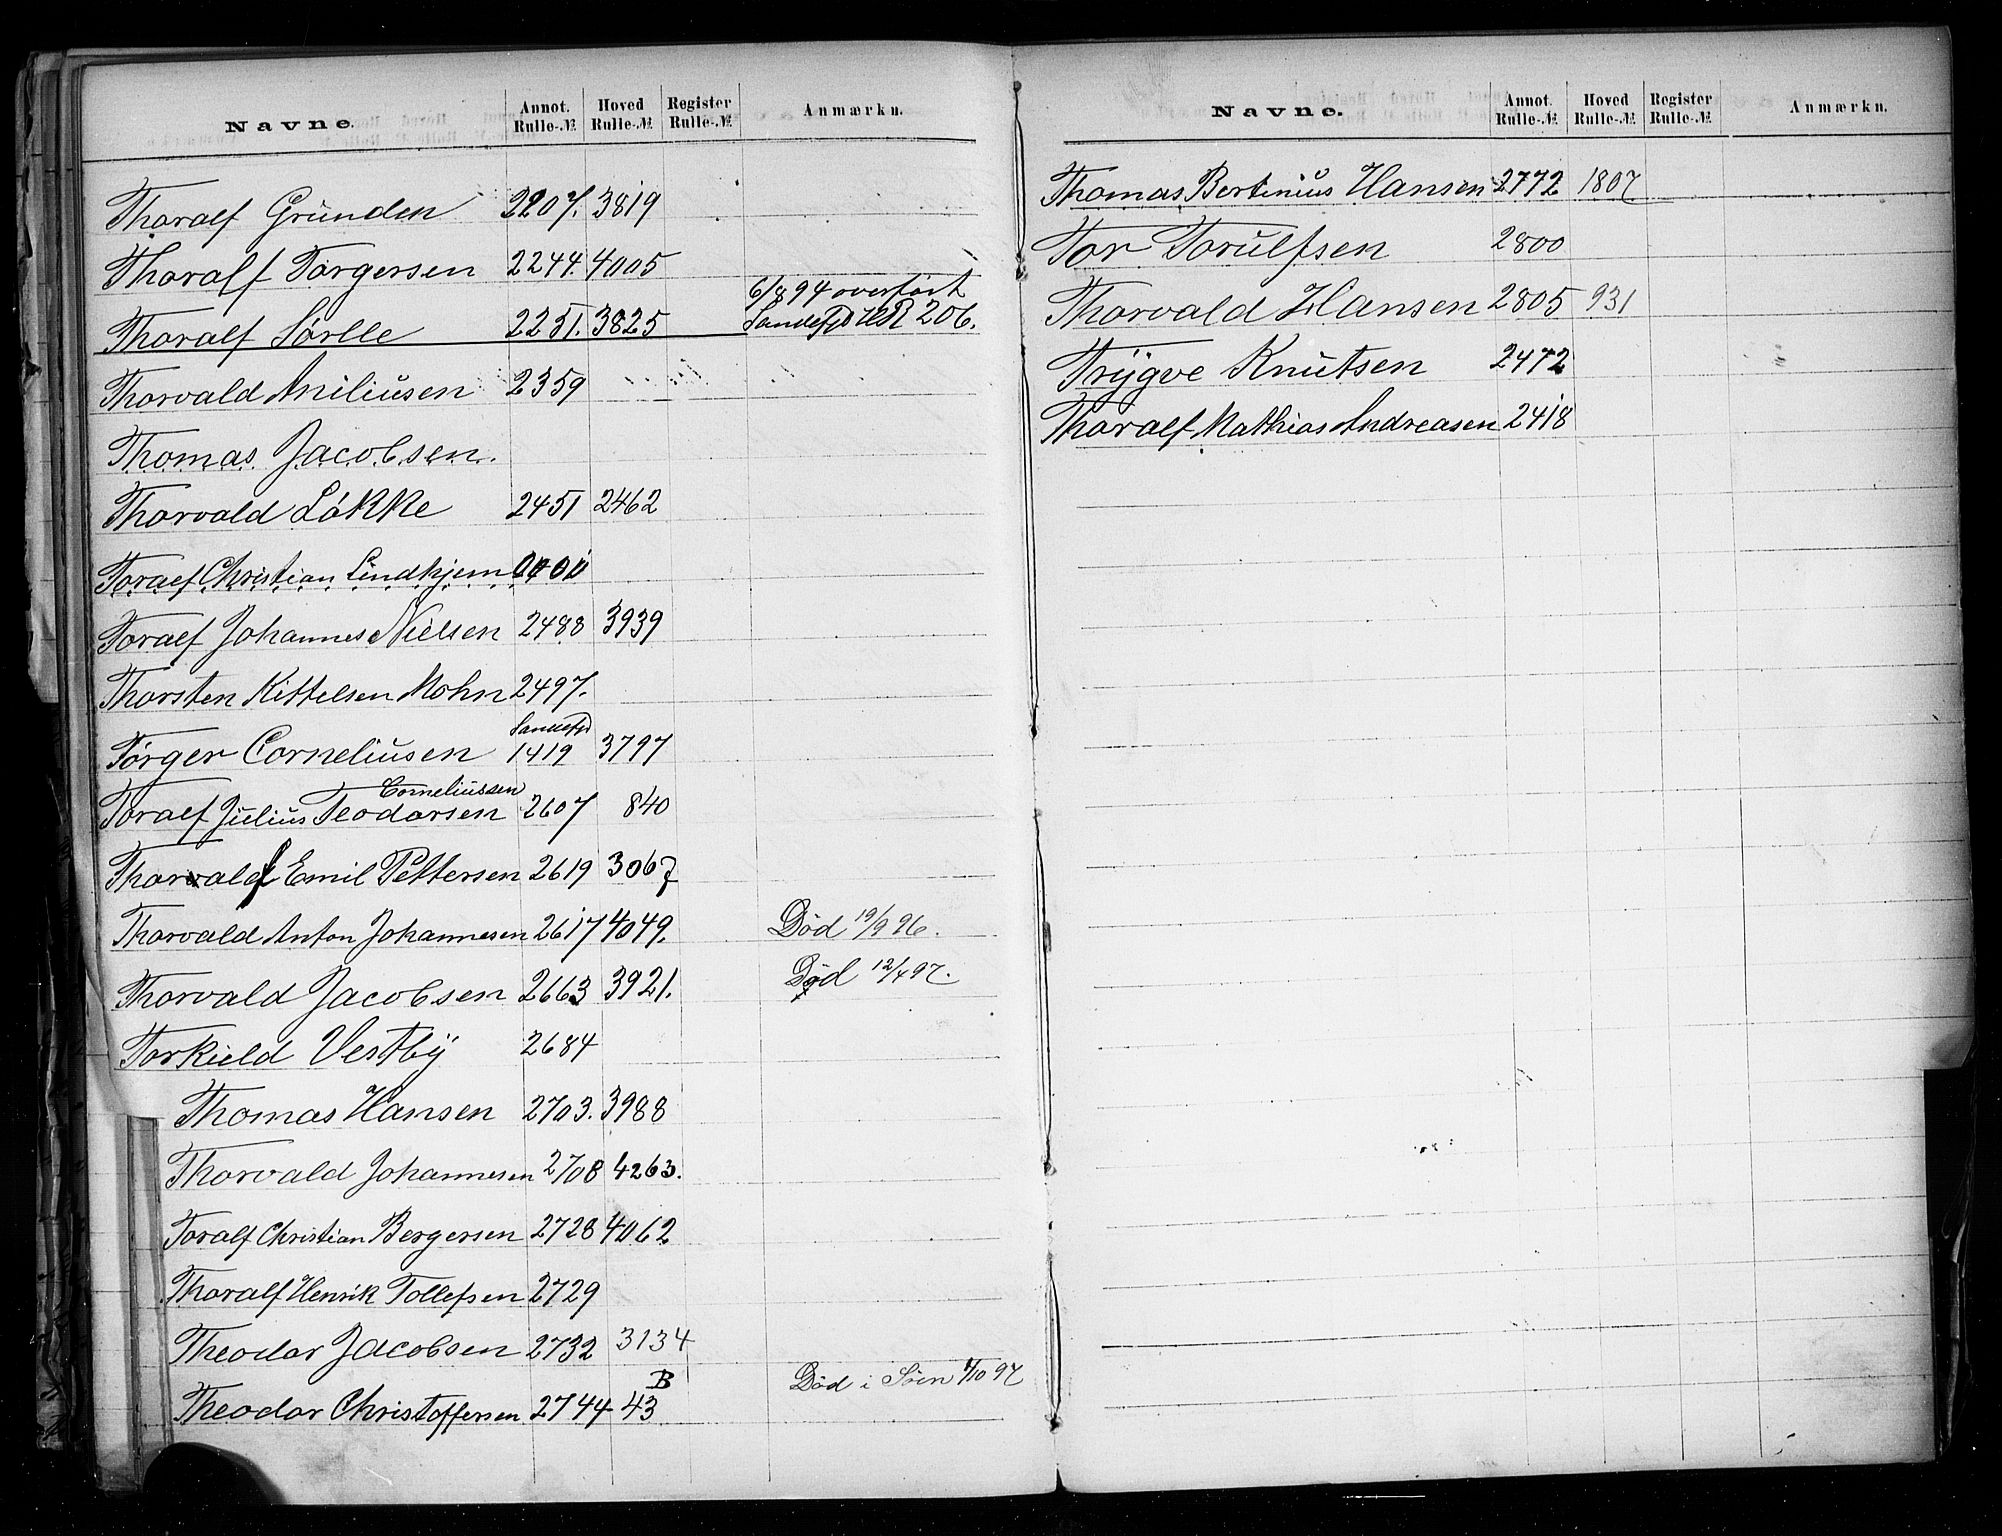 Navne. Annot. Rulle-№ Hoved Rulle-№ Register Rulle-№ Anmærkn.
Thoralf Grunden 2207. 3819
Thoralf Torgersen 2244. 4005
6/8 94 overført
Thoralf Sørlle 2251. 3825 Sandefjd HR 206.
Thorvald Amiliusen 2359
Thomas Jacobsen.
Thorvald Løkke 2451 2462
Toralf Christian Lindhjem
Toralf Johannes Nielsen 2488 3939
Thorsten Kittelsen Mohn 2497.
Sandefjd
Torger Corneliusen 1419 3797
Corneliussen
Toralf Julius Teodorsen 2607 840
Thoralf Emil Pettersen 2619 3067
Thorvald Anton Johannesen 2617 4049. Død 19/9 96.
Thorvald Jacobsen 2663 3921. Død 12/4 97.
Torkield Vestby 2684
Thomas Hansen 2703. 3988
Thorvald Johannesen 2708 4263.
Toralf Christian Bergersen 2728 4062
Thoralf Henrik Tollefsen 2729
Theodor Jacobsen 2732 3134
B Død i Søen 1/10 97
Theodor Christoffersen 2744 43
Navne. Annot. Rulle-№ Hoved Rulle-№ Register Rulle-№ Anmærkn.
Thomas Bertinius Hansen 2772 1807
Tor Torulfsen 2800
Thorvald Hansen 2805 931
Trygve Knutsen 2472
Thoralf Mathias Andreasen 2418